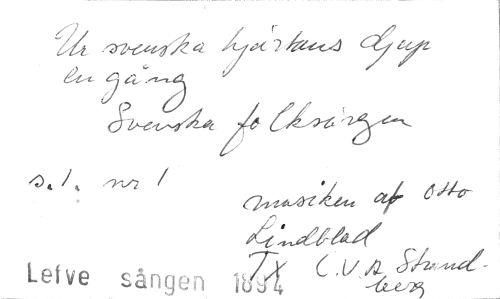 Ur svenska hjärtans djup
en gång
Svenska folksången
s.1. nr 1
musiken af Otto
Lindblad
Tx C.V.A Strand-
berg
Lefve sången 1894